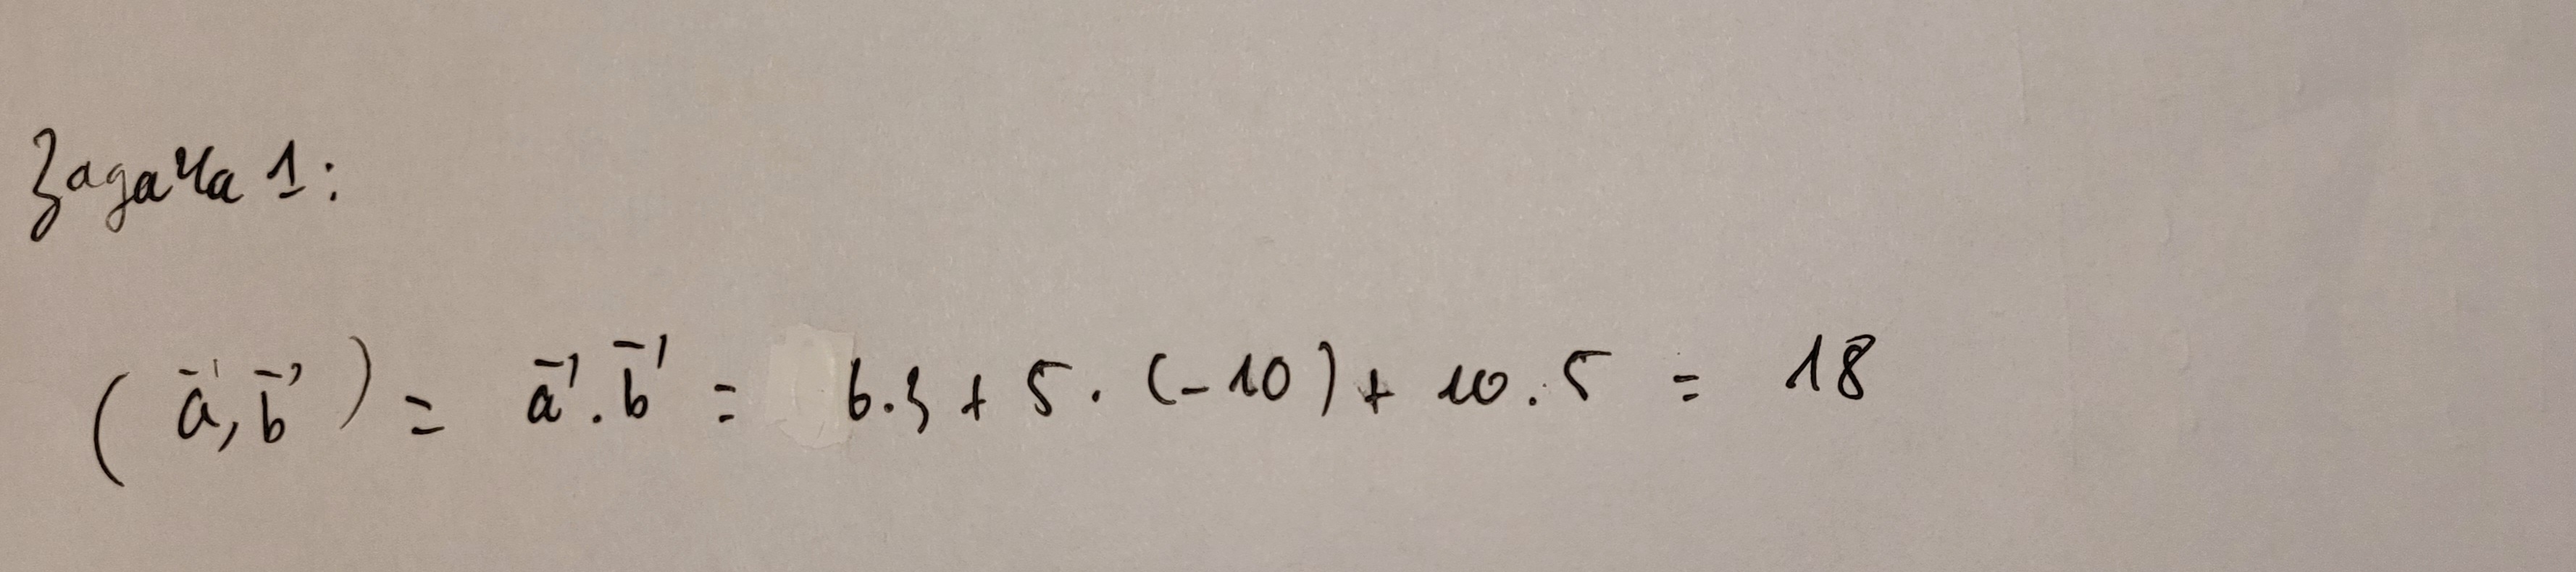 Задача 1:
(a⃗, b⃗) = a⃗ . b⃗ = 6.3 + 5 . (-10) + 10 . 5 = 18